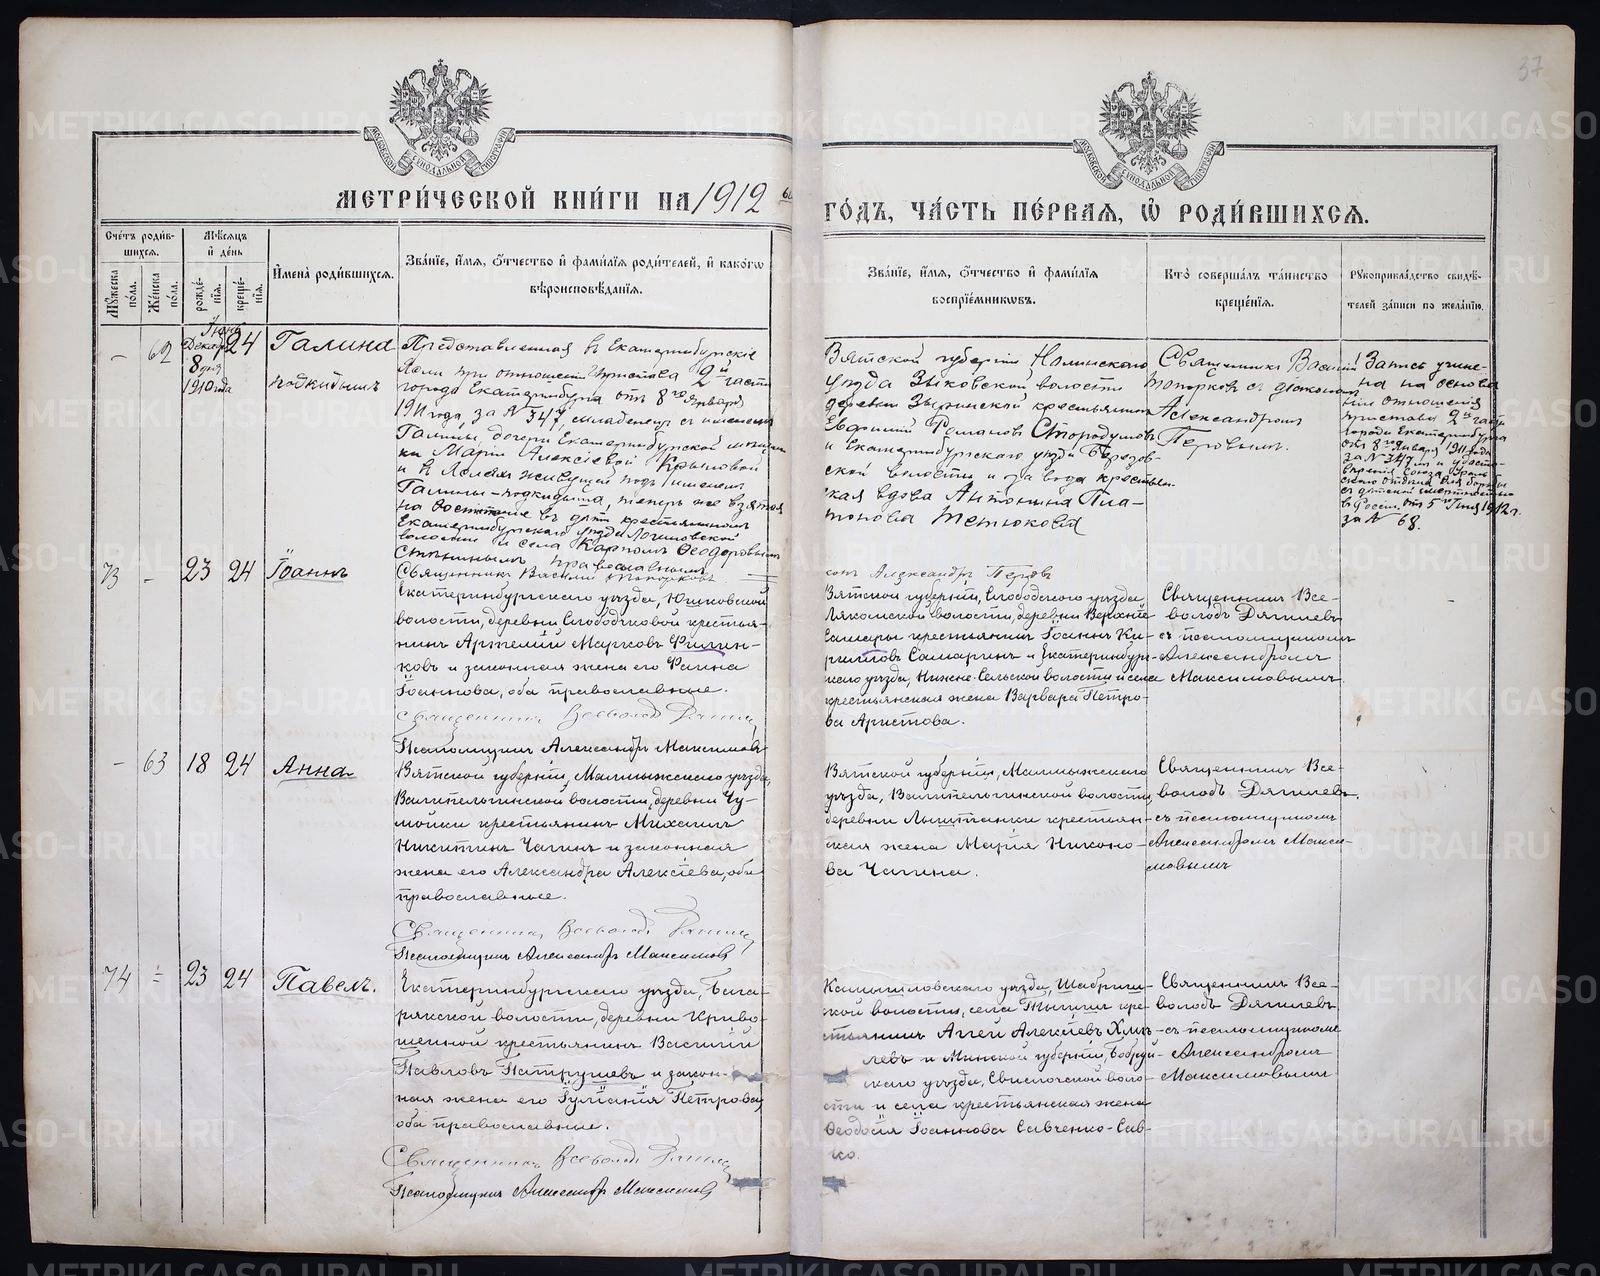 37
МОСКОВСКОЙ СѴНОДАЛЬНОЙ ТИПОГРАФІИ
МОСКОВСКОЙ СѴНОДАЛЬНОЙ ТИПОГРАФІИ
МЕТРИ́ЧЕСКОЙ КНИ́ГИ НА 1912
ГО́ДЪ, ЧА́СТЬ ПЕ́РВАЯ, Ѽ РОДИ́ВШИХСЯ.
Сче́тъ роди́в-
шихся.
Мꙋжеска
по́ла.
Же́нска
по́ла.
Мѣ́сяцъ
и҆ де́нь
рожде́-
нїя.
креще́-
нїя.
И҆мена̀ роди́вшихся.
Зва́нїе, и҆́мя, ѻ҆́тчество и҆ фами́лїя роди́телей, и҆ како́гѡ
вѣроисповѣ́данїя.
Зва́нїе, и҆́мя, ѻ҆́тчество и҆ фами́лїя
воспрїе́мникѡвъ.
Кто̀ соверша́лъ та́инство
креще́нїя.
Рꙋкоприкла́дство свидѣ́-
телей за́писи по жела́нїю.
-
62
Декаб.
8 дня
1910 года
24
Галина
подкидышъ
Представленная въ Екатеринбургскіе
Ясли при отношеніи Пристава 2й части
города Екатеринбурга отъ 8го Января
1911 года, за № 347, младенецъ съ именемъ
Галины, дочери Екатеринбургской мѣщан
ки Маріи Алексіевой Крыловой
и въ Ясляхъ живущій подъ именемъ
Галины-подкидыша, теперь же взятая
на воспитаніе въ дѣти крестьяниномъ
Екатеринбургскаго уѣзда Логиновской
волости и села Карпомъ Ѳеодоровымъ
православнымъ
Священникъ Василій Топорковъ
Вятской губерніи Нолинскаго
уѣзда Зыковской волости
деревни крестьянинъ
Евфимій Романовъ Стародумовъ
и Екатеринбургскаго уѣзда Березов-
ской волости и завода крестьян-
ская вдова Антонина Пла-
тонова Тетюкова
Священникъ Василій
Топорковъ съ діакономъ
Александромъ
Перовымъ.
Запись учине-
на на основа
ніи отношенія
Пристава 2й части
города Екатеринбурга
отъ 8го Января 1911 года
за № 347
Союза
борьбы
съ дѣтской смертностью
въ Россіи отъ 5го Іюня 1912 г.
за № 68.
73
-
23
24
Іоаннъ
Екатеринбургскаго уѣзда, Юшковской
волости, деревни Слободчиковой крестья-
нинъ Артемій Марковъ Филин-
ковъ и законная жена его Фаина
Іоаннова, оба православные.
Священникъ Всеволодъ Дягилевъ
Псаломщикъ Александръ Максимовъ
Діаконъ Александръ Перовъ
Вятской губерніи, Слободского уѣзда
волости, деревни Верхніе
Самары крестьянинъ Іоаннъ Ки-
рилловъ Самаринъ и Екатеринбург-
скаго уѣзда, Нижне-Сельской волости и села
крестьянская жена Варвара Петро-
ва Аристова.
Священникъ Все-
володъ Дягилевъ
съ псаломщикомъ
Александромъ
Максимовымъ.
-
63
18
24
Анна
Вятской губерніи, Малмыжскаго уѣзда,
волости, деревни Чу-
мойки крестьянинъ Михаилъ
Никитинъ Чагинъ и законная
жена его Александра Алексіева, оба
православные.
Священникъ Всеволодъ Дягилевъ
Псаломщикъ Александръ Максимовъ
Вятской губерніи, Малмыжскаго
уѣзда, волости,
деревни крестьян-
ская жена Марія Никоно-
ва Чагина.
Священникъ Все-
володъ Дягилевъ
съ псаломщикомъ
Александромъ Макси-
мовымъ
74
-
23
24
Павелъ.
Екатеринбургскаго уѣзда, Бага-
рякской волости, деревни Криво-
шеиной крестьянинъ Василій
Павловъ Патрушевъ и закон-
ная жена его Іуліанія Петрова,
оба православные.
Священникъ Всеволодъ Дягилевъ
Псаломщикъ Александръ Максимовъ
Камышловскаго уѣзда, Шабриш-
ской волости, села кре-
стьянинъ Аггей Алексіевъ Хмы-
левъ и Минской губерніи, Бобруй-
скаго уѣзда, Свислочской воло-
сти и села крестьянская жена
Ѳеодосія Іоаннова Савченко-Сав-
ко.
Священникъ Все-
володъ Дягилевъ
съ псаломщикомъ
Александромъ
Максимовымъ
METRIKI.GASO-URAL.RU